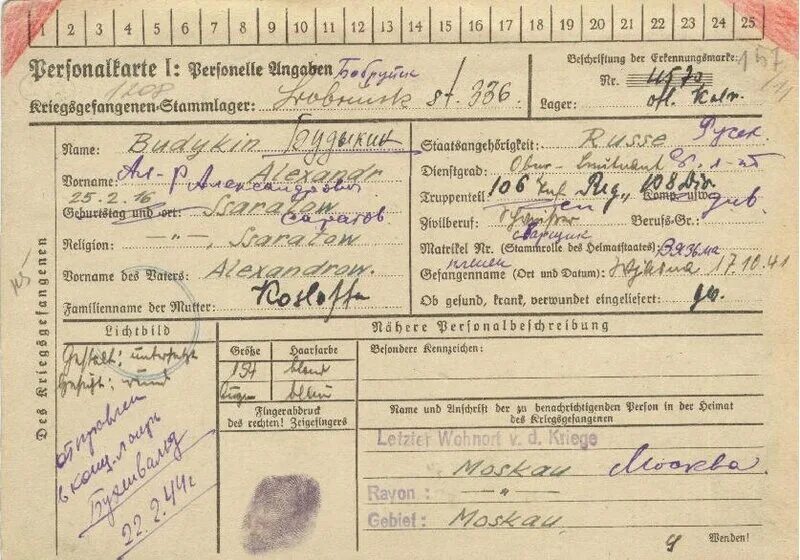 1 2 3 4 5 6 7 8 9 10 11 12 13 14 15 16 17 18 19 20 21 22 23 24 25
Personalkarte I: Personelle Angaben Бобруйск
Kriegsgefangenen-Stammlager: Bobruisk St. 336
Beschriftung der Erkennungsmarke
Nr.
Lager:
Des Kriegsgefangenen
Name: Budykin Будыкин
Vorname: Ал-р Alexandr Александрович
25.2.16
Geburtstag und -ort: Ssaratow Саратов
Religion: Ssaratow
Vorname des Vaters: Alexandrow.
Familienname der Mutter: Kosloffa
Staatsangehörigkeit: Russe Русск.
Dienstgrad: Ober-
Truppenteil 106 Inf Reg., 108 Div. Komp. usw.
див.
Zivilberuf: Berufs-Gr.:
сварщик
Matrikel Nr. (Stammrolle des Heimatstaates): Вязьма
пленен
Gefangenname (Ort und Datum): Wjasma 17.10.41
Ob gesund, krank, verwundet eingeliefert: ges.
Lichtbild
Gestalt: untersetzt
Gesicht: rund
отправлен
в конц. лагерь
Бухенвальд
22.2.44г
Nähere Personalbeschreibung
Größe Haarfarbe
blond
Augen blau
Besondere Kennzeichen:
Fingerabdruck
des rechten! Zeigefingers
Name und Anschrift der zu benachrichtigenden Person in der Heimat
des Kriegsgefangenen
Letzter Wohnort v. d. Kriege
Moskau Москва.
Rayon: - " -
Gebiet: Moskau
Wenden!